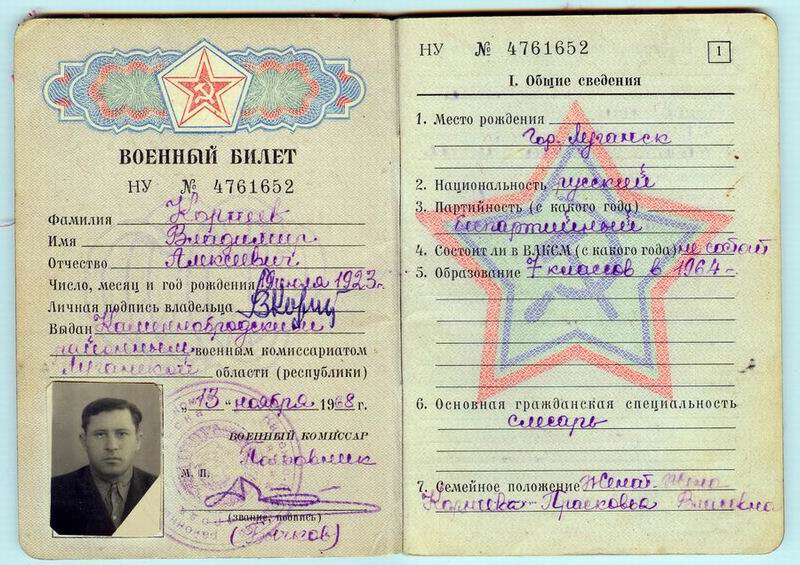 ВОЕННЫЙ БИЛЕТ
НУ № 4761652
Фамилия Корнеев
Имя Владимир
Отчество Алексеевич
Число, месяц и год рождения 19 июля 1923 г.
Личная подпись владельца ВКорн
Выдан Каменнобродским
районным военным комиссариатом
Луганской области (республики)
„13“ ноября 1968 г.
ВОЕННЫЙ КОМИССАР
Полковник
М. П.
(звание, подпись)
НУ № 4761652
1
I. Общие сведения
1. Место рождения
Гор. Луганск
2. Национальность русский
3. Партийность (с какого года)
беспартийный
4. Состоит ли в ВЛКСМ (с какого года) не состоит
5. Образование 7 классов в 1964 г.
6. Основная гражданская специальность
слесарь
7. Семейное положение Женат. жена
Корнеева Прасковья